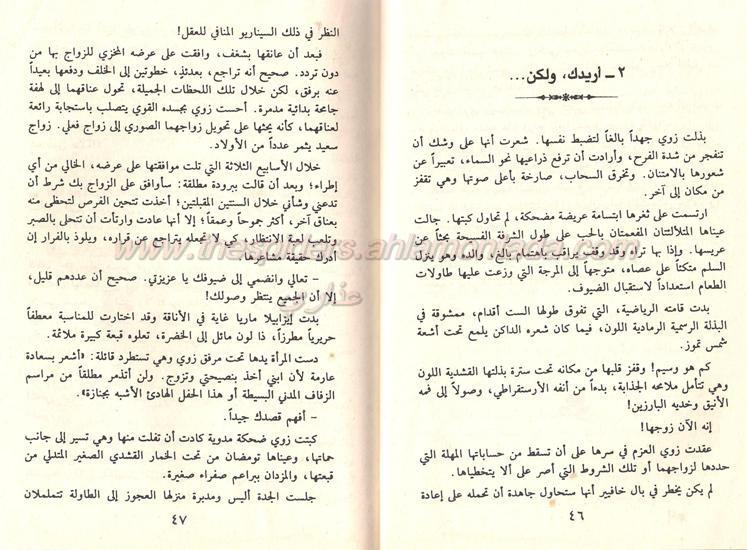 ٢ – اريدك، ولكن...
بذلت زوي جهداً بالغاً لتضبط نفسها. شعرت أنها على وشك أن
تنفجر من شدة الفرح، وأرادت أن ترفع ذراعيها نحو السماء، تعبيراً عن
شعورها بالامتنان. وتخرق السحاب، صارخة بأعلى صوتها وهي تقفز
من مكان إلى آخر.
ارتسمت على ثغرها ابتسامة عريضة مضحكة، لم تحاول كبتها. جالت
عيناها المتلألئتان المفعمتان بالحب على طول الشرفة الفسيحة بحثاً عن
عريسها. وإذا بها تراه وقد وقف يراقب باهتمام بالغ، والده وهو ينزل
السلم متكئاً على عصاه، متوجهاً إلى المرجة التي وزعت عليها طاولات
الطعام استعداداً لاستقبال الضيوف.
بدت قامته الرياضية، التي تفوق طولها الست أقدام، ممشوقة في
البذلة الرسمية الرمادية اللون، فيما كان شعره الداكن يلمع تحت أشعة
شمس تموز.
كم هو وسيم! وقفز قلبها من مكانه تحت سترة بذلتها القشدية اللون
وهي تتأمل ملامحه الجذابة، بدءاً من أنفه الأرستقراطي، وصولاً إلى فمه
الأنيق وخديه البارزين!
إنه الآن زوجها!
عقدت زوي العزم في سرها على أن تسقط من حساباتها المهلة التي
حددها لزواجهما أو تلك الشروط التي أصر على ألا يتخطياها.
لم يكن يخطر في بال خافيير أنها ستحاول جاهدة أن تحمله على إعادة
٤٦
النظر في ذلك السيناريو المنافي للعقل!
فبعد أن عانقها بشغف، وافقت على عرضه المخزي للزواج بها من
دون تردد. صحيح أنه تراجع، بعدئذٍ، خطوتين إلى الخلف ودفعها بعيداً
عنه برفق، لكن خلال تلك اللحظات الجميلة، تحول عناقهما إلى لهفة
جامحة بدائية مدمرة. أحست زوي بجسده القوي يتصلب باستجابة رائعة
لعناقهما، كأنه يحثها على تحويل زواجهما الصوري إلى زواج فعلي. زواج
سعيد يثمر عدداً من الأولاد.
خلال الأسابيع الثلاثة التي تلت موافقتها على عرضه، الخالي من أي
إطراء؛ وبعد أن قالت ببرودة مطلقة: سأوافق على الزواج بك شرط أن
تدعني وشأني خلال السنتين المقبلتين؛ أخذت تتحين الفرص لتحظى منه
بعناق آخر، أكثر جموحاً وعمقاً؛ إلا أنها عادت وارتأت أن تتحلى بالصبر
وتلعب لعبة الانتظار، كي لا تجعله يتراجع عن قراره، ويلوذ بالفرار إن
أدرك حقيقة مشاعرها.
– تعالي وانضمي إلى ضيوفك يا عزيزتي. صحيح أن عددهم قليل،
إلا أن الجميع ينتظر وصولك!
بدت إيزابيلا ماريا غاية في الأناقة وقد اختارت للمناسبة معطفاً
حريرياً مطرزاً، ذا لون مائل إلى الخضرة، تعلوه قبعة كبيرة ملائمة.
دست المرأة يدها تحت مرفق زوي وهي تستطرد قائلة: «أشعر بسعادة
عارمة لأن ابني أخذ بنصيحتي وتزوج. ولن أتذمر مطلقاً من مراسم
الزفاف المدني البسيطة أو هذا الحفل الهادئ الأشبه بجنازة».
– أفهم قصدك جيداً.
كبتت زوي ضحكة مدوية كادت أن تفلت منها وهي تسير إلى جانب
حماتها، وعيناها تومضان من تحت الخمار القشدي الصغير المتدلي من
قبعتها، والمزدان ببراعم صفراء صغيرة.
جلست الجدة أليس ومدبرة منزلها العجوز إلى الطاولة تتململان
٤٧